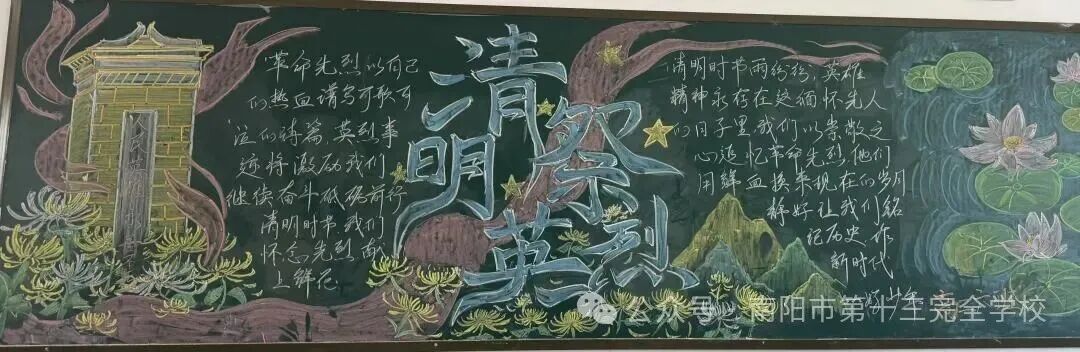 人民英雄
革命先烈以自己
们热血谱写可歌可
泣们诗篇,英烈事
迹将激励我们
继续奋斗砥砺前行
清明时节我们
怀念先烈献
上鲜花
清明
祭英烈
清明时节雨纷纷,英雄
精神永存在这缅怀先人
们日子里,我们以崇敬之
心追忆革命先烈,他们
用鲜血换来现在们岁月
静好让我们铭
记历史,作
新时代
少年
公众号 南阳市第十三完全学校